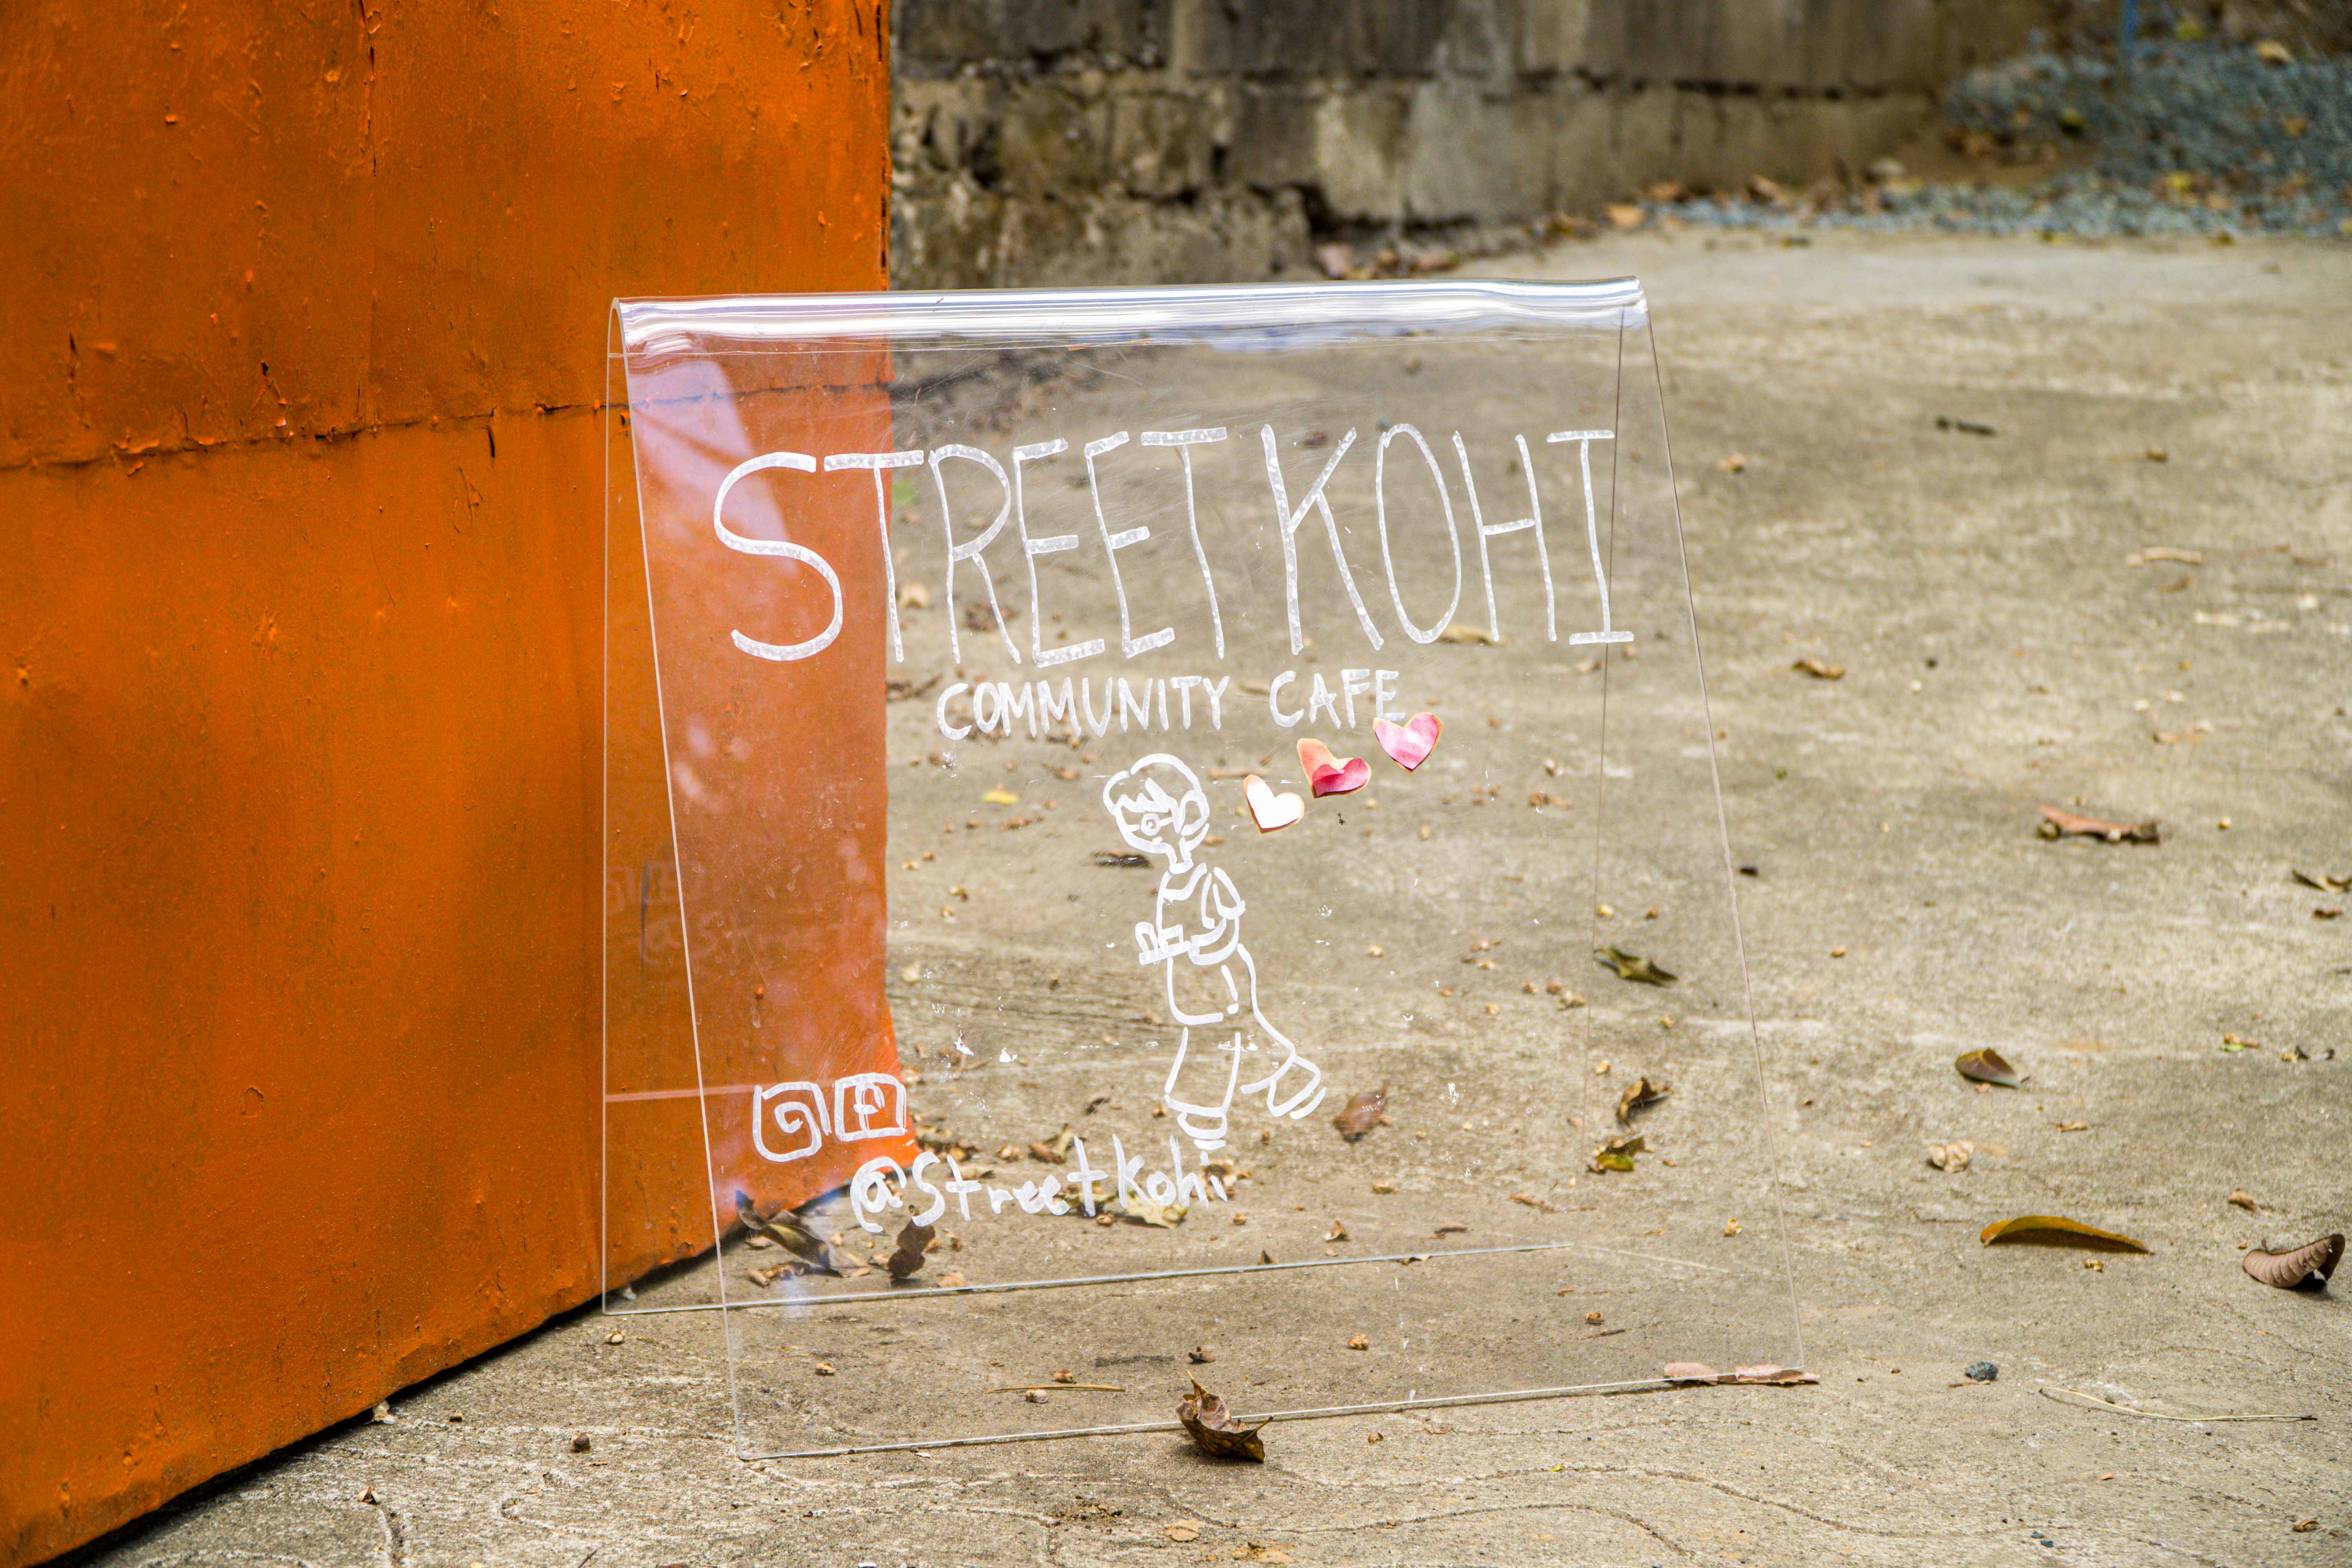 STREET KOHI
COMMUNITY CAFE
@StreetKohi